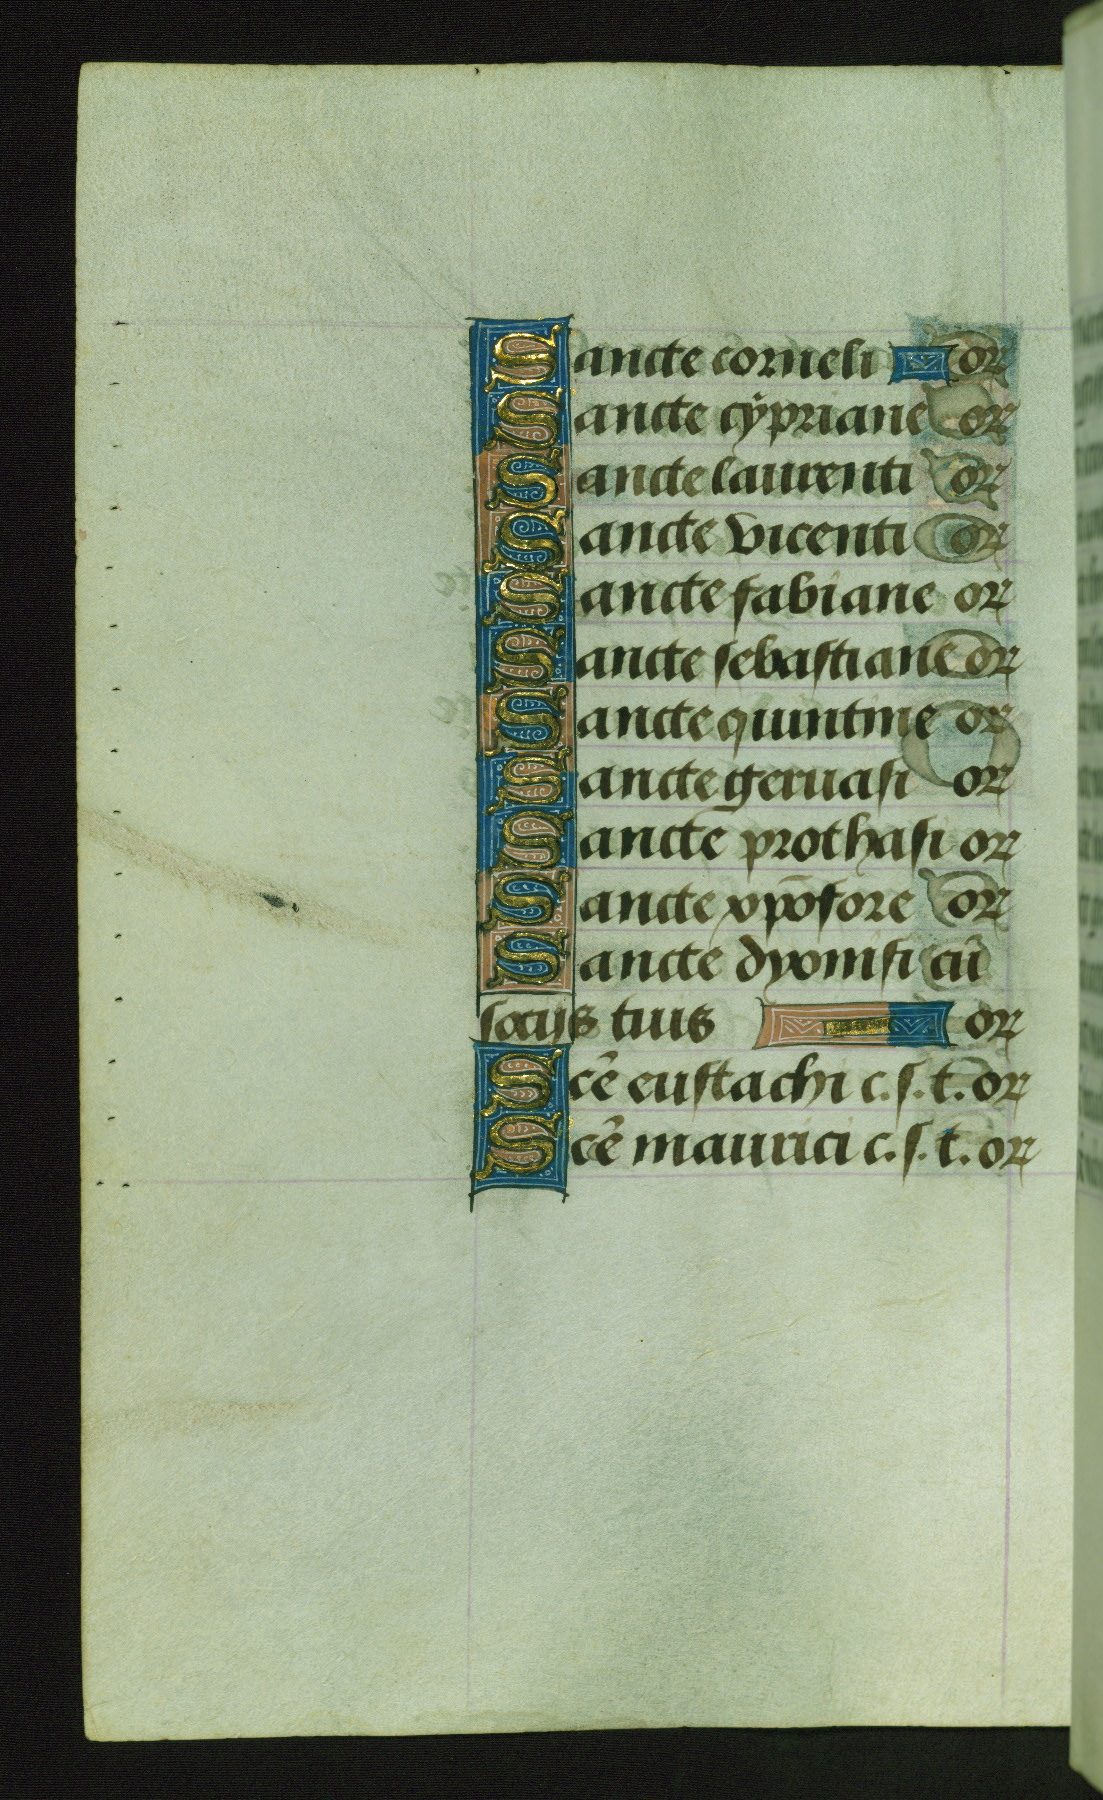 Sancte corneli or
Sancte cypriane or
Sancte laurenti or
Sancte vicenti or
Sancte fabiane or
Sancte sebastiane or
Sancte quintine or
Sancte geruasi or
Sancte prothasi or
Sancte xp̄ofore or
Sancte dyonisi cū
socijs tuis or
Scē eustachi c.s.t. or
Scē maurici c.s.t. or